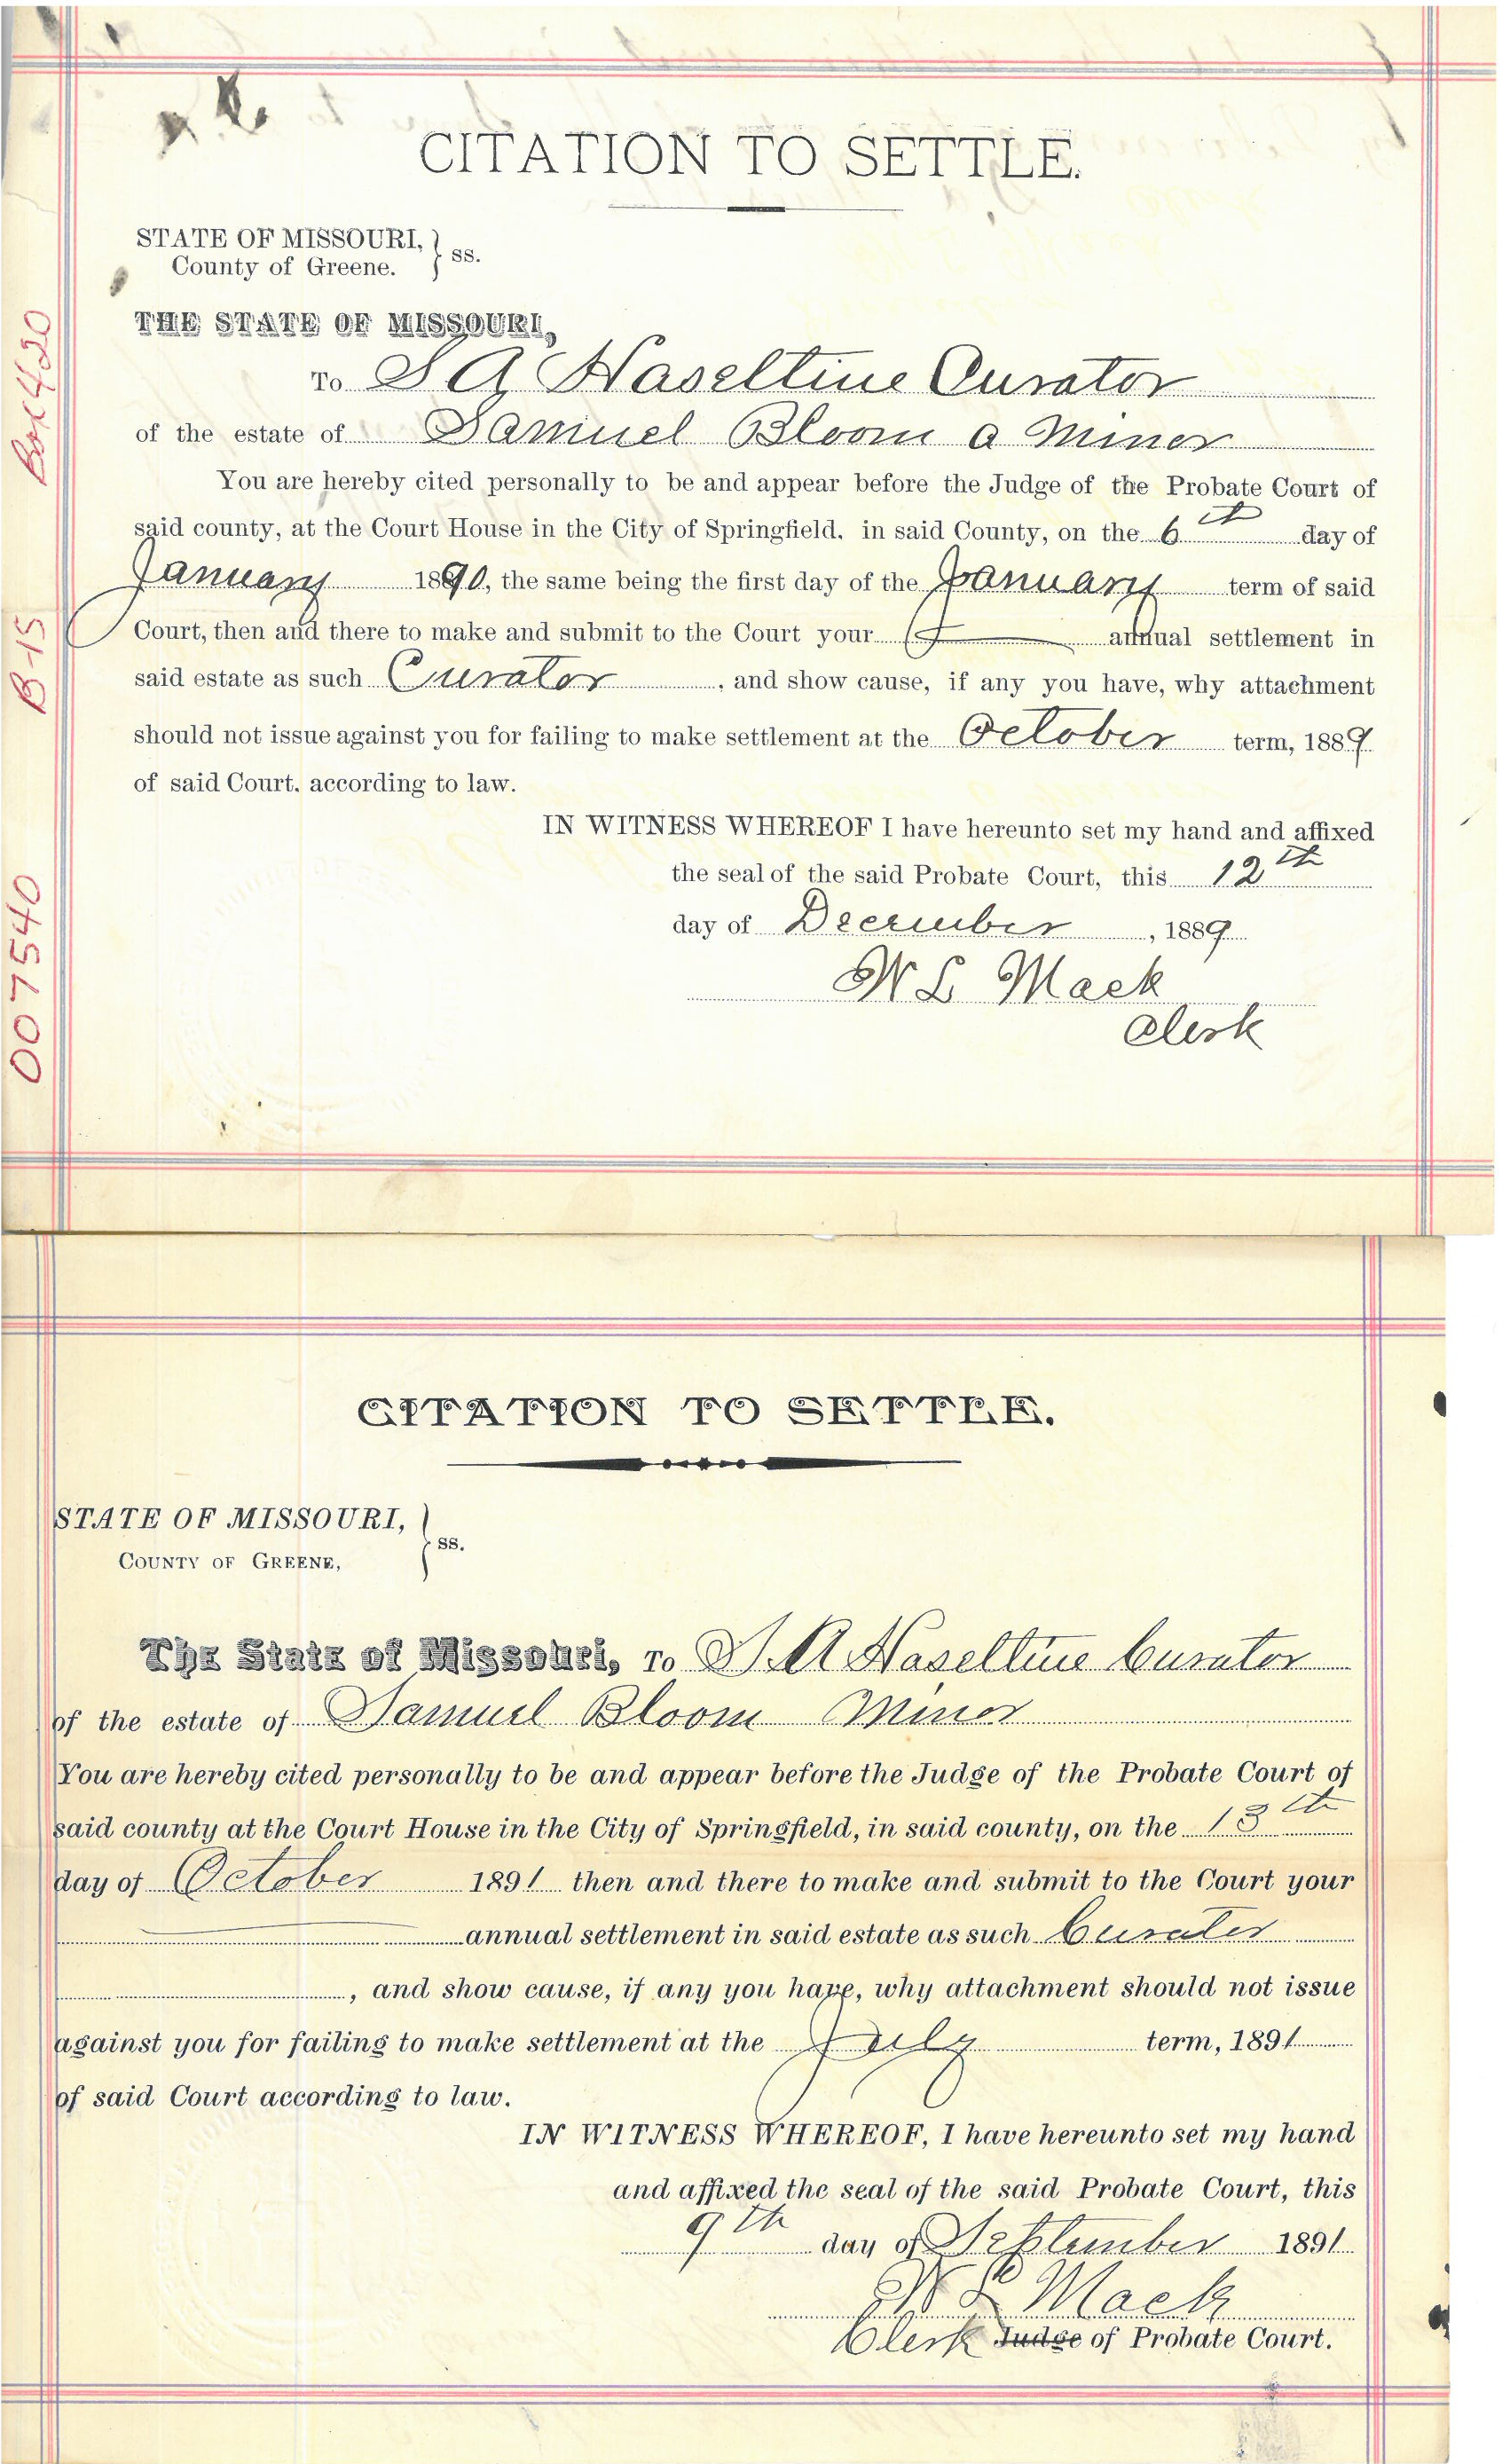 CITATION TO SETTLE.
STATE OF MISSOURI, } ss.
County of Greene.
THE STATE OF MISSOURI,
To S A Haseltine Curator
of the estate of Samuel Bloom a Minor
You are hereby cited personally to be and appear before the Judge of the Probate Court of
said county, at the Court House in the City of Springfield. in said County, on the 6th day of
January 1890, the same being the first day of the January term of said
Court, then and there to make and submit to the Court your annual settlement in
said estate as such Curator, and show cause, if any you have, why attachment
should not issue against you for failing to make settlement at the October term, 1889
of said Court. according to law.
IN WITNESS WHEREOF I have hereunto set my hand and affixed
the seal of the said Probate Court, this 12th
day of December, 1889
W L Mack
Clerk
Box 420
B-15
007540
CITATION TO SETTLE.
STATE OF MISSOURI, } ss.
COUNTY OF GREENE,
The State of Missouri, To S. A Haseltine Curator
of the estate of Samuel Bloom Minor
You are hereby cited personally to be and appear before the Judge of the Probate Court of
said county at the Court House in the City of Springfield, in said county, on the 13th
day of October 1891 then and there to make and submit to the Court your
annual settlement in said estate as such Curator
, and show cause, if any you have, why attachment should not issue
against you for failing to make settlement at the July term, 1891
of said Court according to law.
IN WITNESS WHEREOF, I have hereunto set my hand
and affixed the seal of the said Probate Court, this
9th day of September 1891
W L Mack
Clerk Judge of Probate Court.